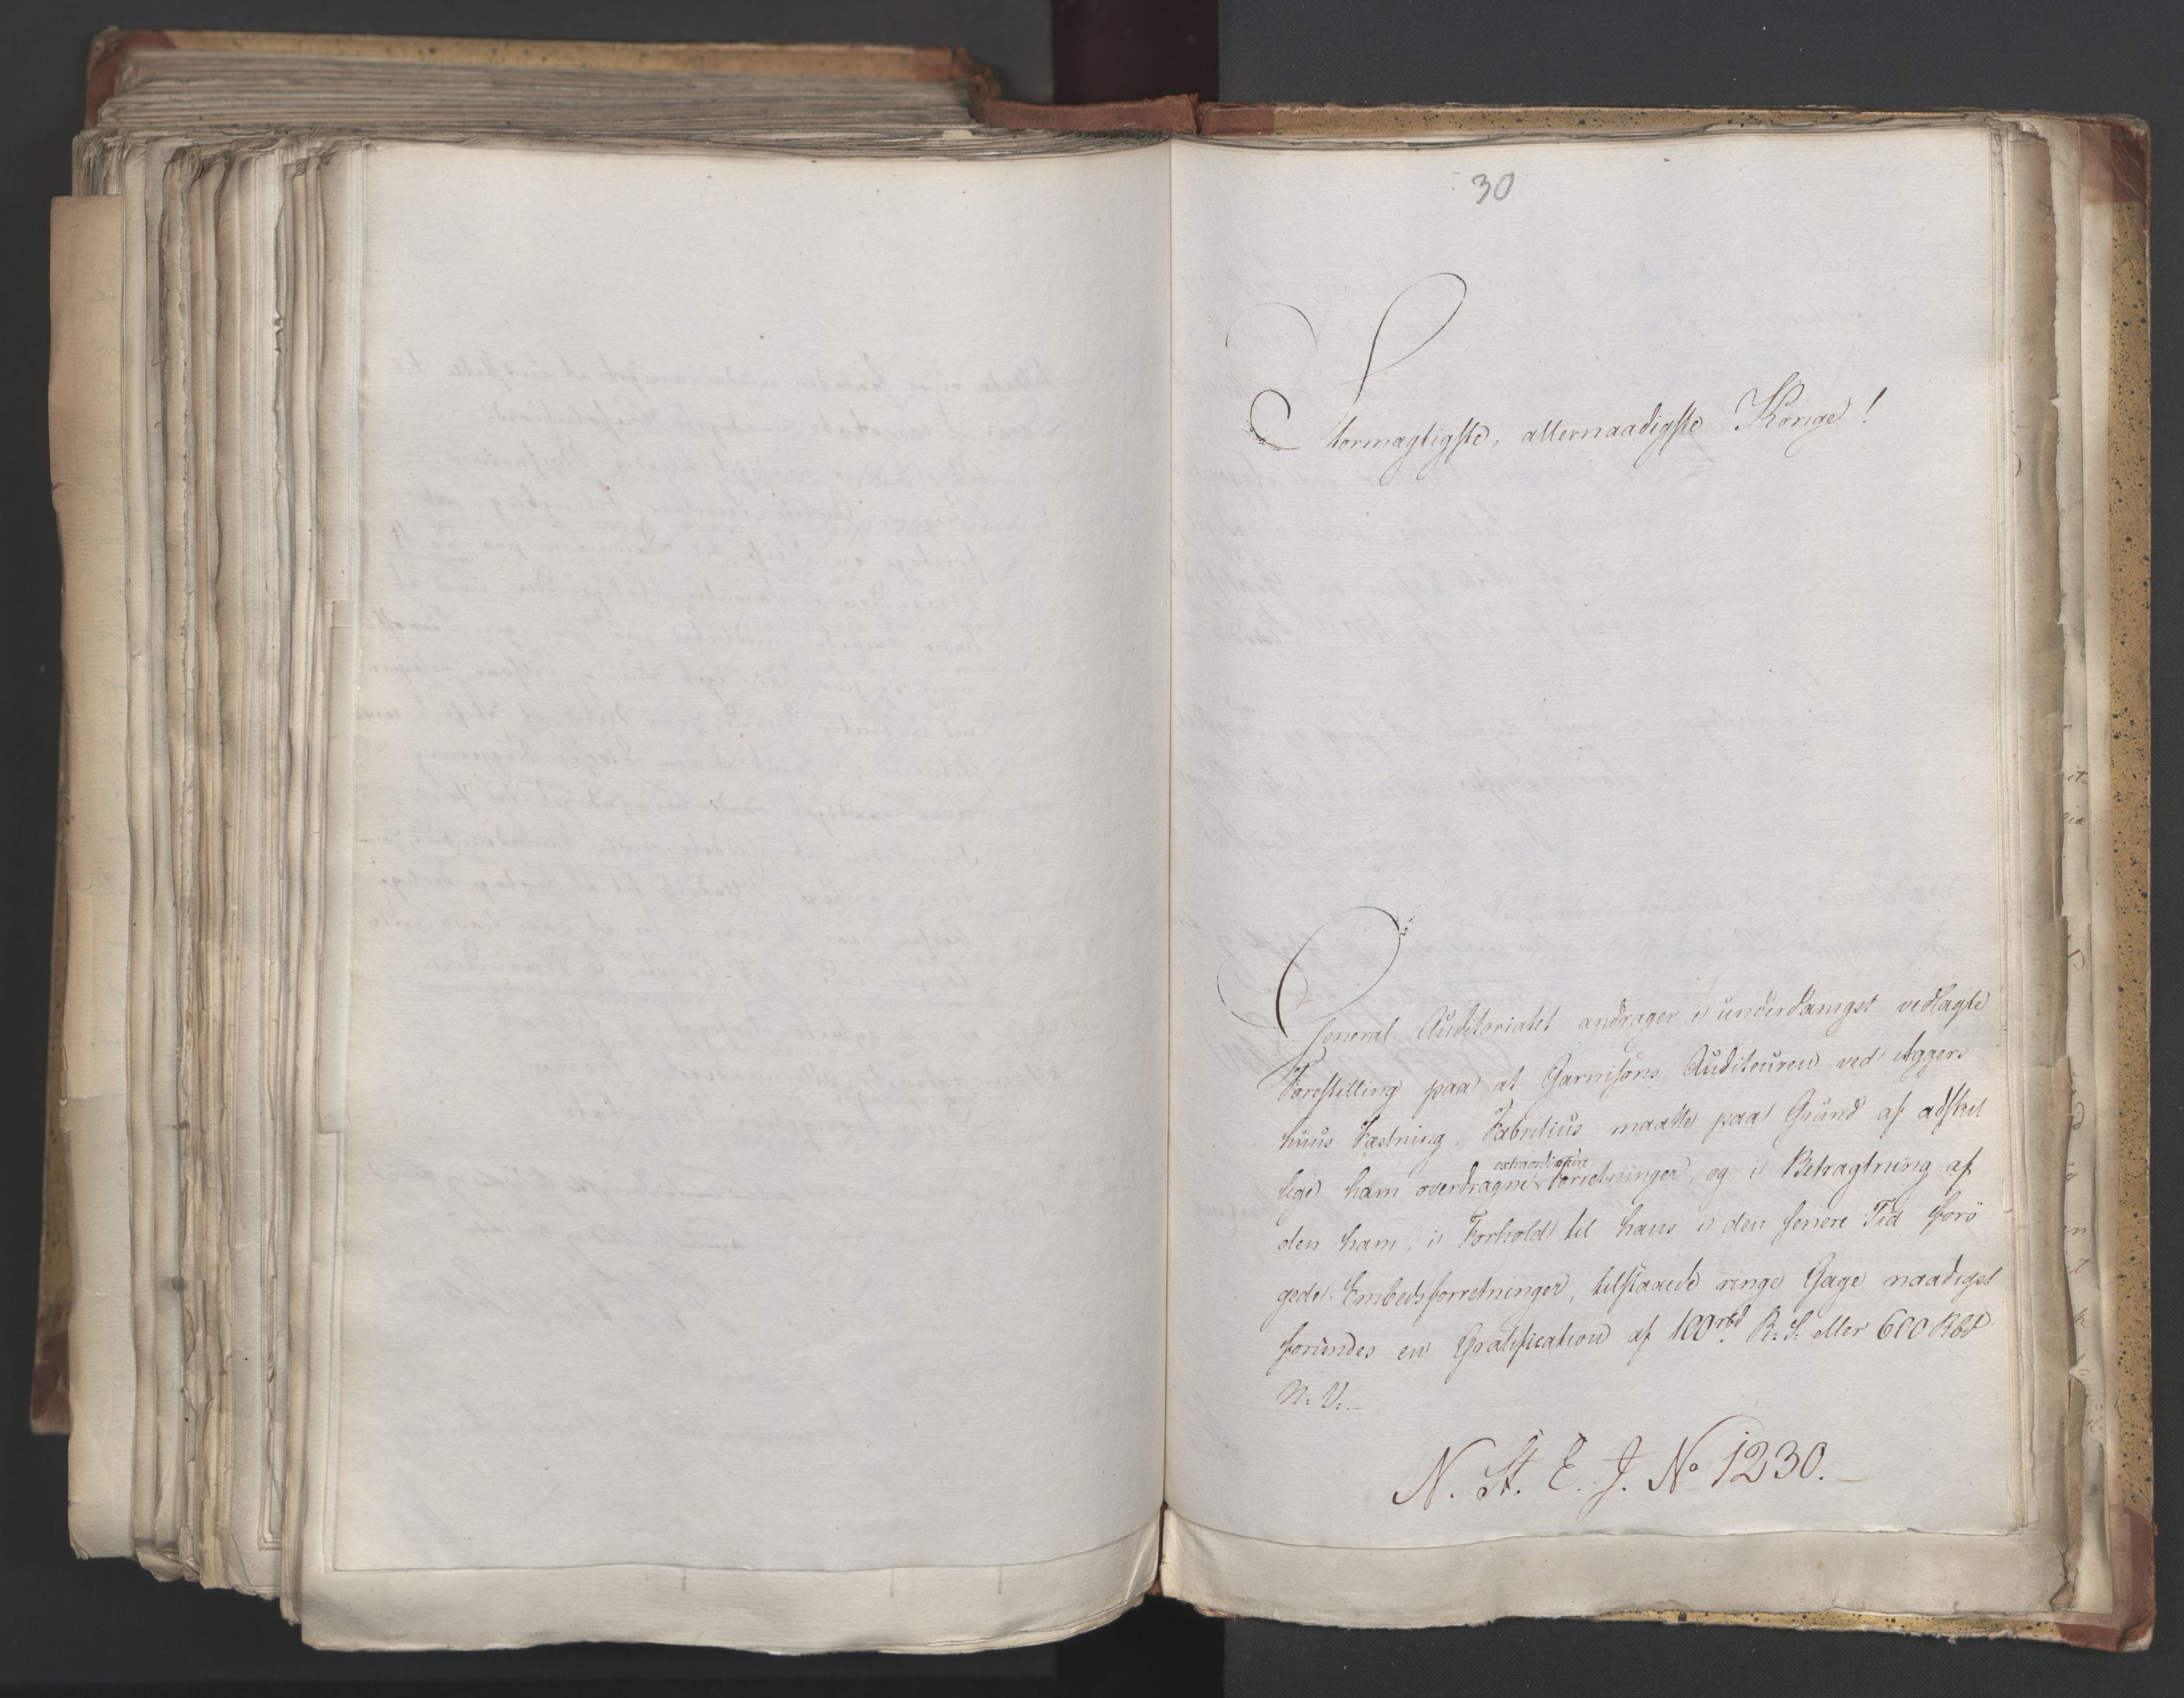 30
Stormægtigste, allernaadigste Konge!
General Auditoriatet andrager i underdanigst vedlagte
Forestilling paa at Garnisons Auditeuren ved Aggers
huus Fæstning, Fabritius maatte paa Grund af adskil
lige ham overdragne extraordinaire Forretninger, og i Betragtning af
den ham, i Forhold til hans i den senere Tid forö
gede Embedsforretninger, tilstaaede ringe Gage naadigst
forundes en Gratification af 100 rbd R: S: eller 600 Rbd
N: V:
N. St. E. J. No 1230.